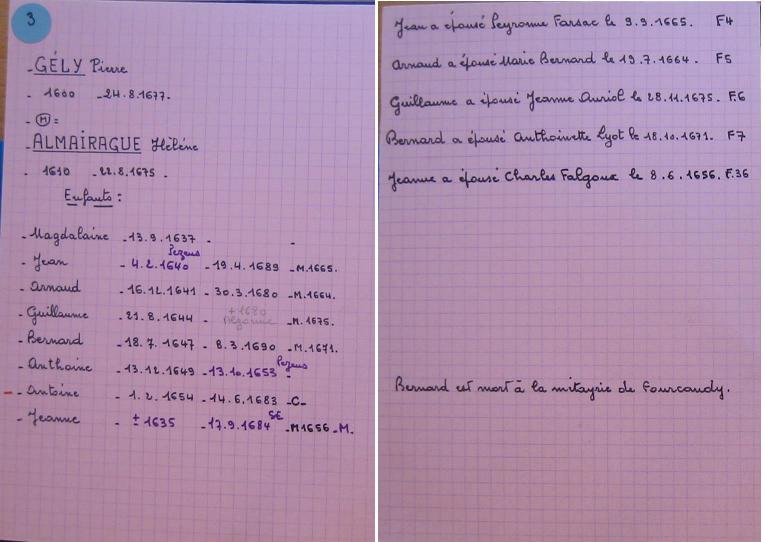 3
- GÉLY Pierre
- 1600 - 24.8.1677.
- M =
- ALMAIRAGUE Hélène
- 1610 - 22.8.1675.
Enfants :
- Magdalaine - 13.9.1637 - -
Pezens
- Jean - 4.2.1640 - 19.4.1689 - M.1665.
- Arnaud - 16.12.1641 - 30.3.1680 - M.1664.
+1680
- Guillaume - 21.8.1644 - - M.1675.
- Bernard - 18.7.1647 - 8.3.1690 - M.1671.
Pezens
- Anthoine - 13.12.1649 - 13.10.1653 -
- Antoine - 1.2.1654 - 14.6.1683 - C -
SE
- Jeanne - ± 1635 - 17.9.1684 - M1656 - M.
Jean a épousé Peyronne Farsac le 9.9.1665. F4
Arnaud a épousé Marie Bernard le 19.7.1664. F5
Guillaume a épousé Jeanne Auriol le 28.11.1675. F.6
Bernard a épousé Anthoinette Lyot le 18.10.1671. F7
Jeanne a épousé Charles Falgoux le 8.6.1656. F.36
Bernard est mort à la mitayrie de Fourcaudy.